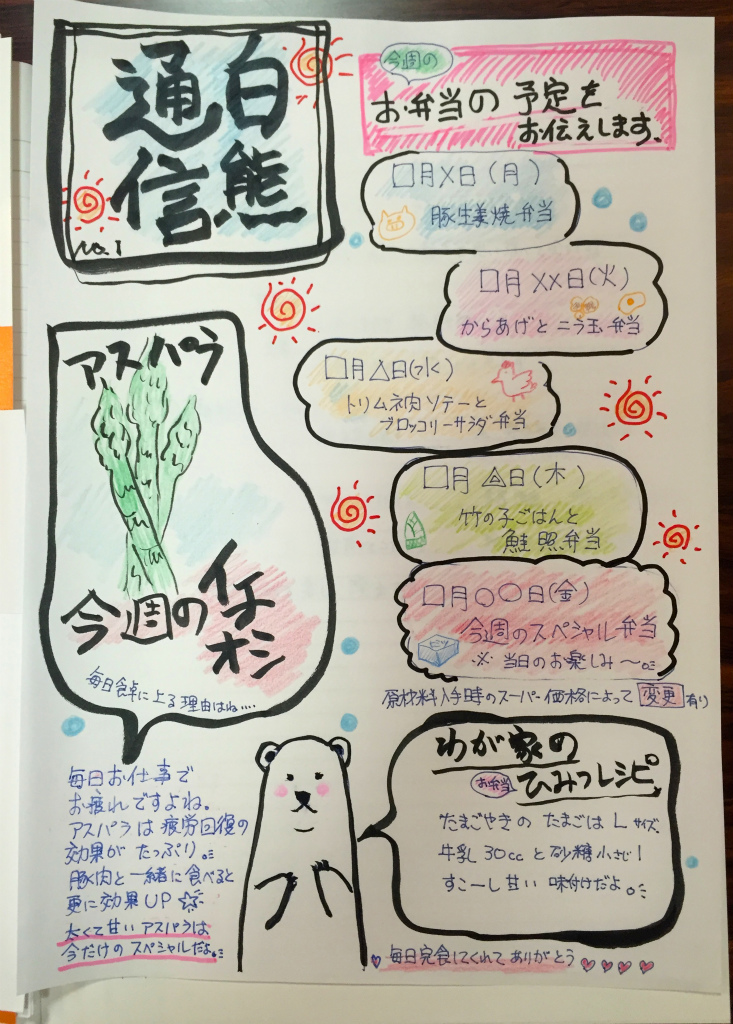 白熊
通信
No.1
今週の
お弁当の予定を
お伝えします。
□月×日(月)
豚生姜焼弁当
□月××日(火)
からあげとニラ玉弁当
□月△日(水)
トリムネ肉ソテーと
ブロッコリーサラダ弁当
□月△日(木)
竹の子ごはんと
鮭照弁当
□月○○日(金)
今週のスペシャル弁当
※当日のお楽しみ〜。
原材料入手時のスーパー価格によって変更有り
アスパラ
今週のイチオシ
毎日食卓に上る理由はね....
毎日お仕事で
お疲れですよね。
アスパラは疲労回復の
効果がたっぷり。
豚肉と一緒に食べると
更に効果UP☆
太くて甘いアスパラは
今だけのスペシャルだよ。
わが家の
お弁当
ひみつレシピ
たまごやきのたまごはLサイズ。
牛乳30ccと砂糖小さじ1
すこーし甘い味付けだよ。
毎日完食してくれてありがとう